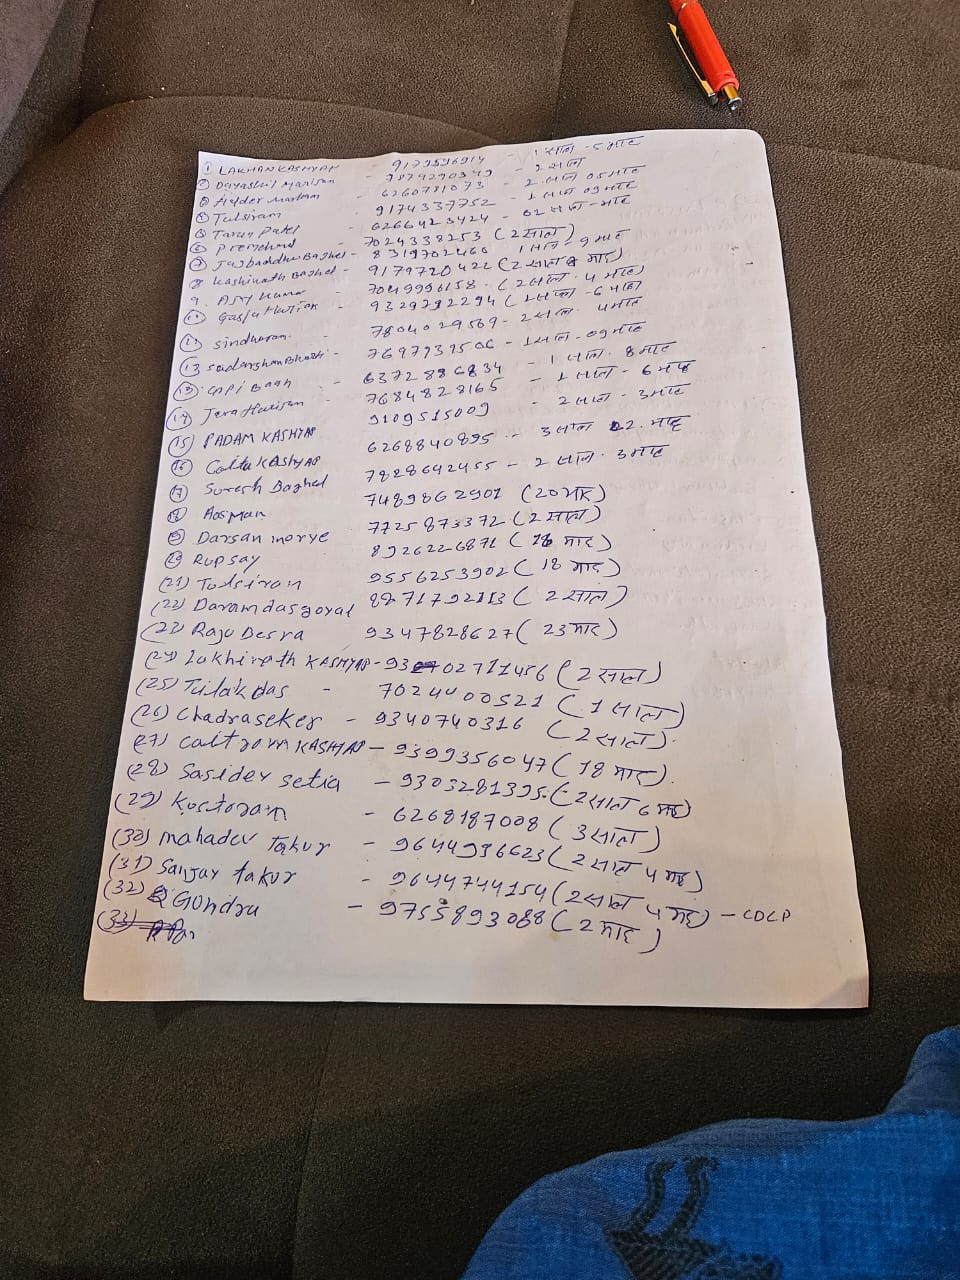 ① LAKHAN KASHYAP - 9179596914 - 1 साल - 5 माह
② Dayashil Harison - 9874290349 - 2 साल
③ Hyder - 6260781073 - 2 साल 05 माह
④ Tulsiram - 9174337752 - 1 साल 09 माह
⑤ Tarun Patel - 6266423424 - 02 साल - माह
⑥ Premchand - 7024338253 (2 साल)
⑦ Baghel - 8319702460 1 साल - 9 माह
8 Kashinath Baghel - 9179720422 (2 साल माह)
9. - 7049996158 - (2 साल - 4 माह)
⑩ - 9329792294 (1 साल - 6 माह)
⑪ sindhuram - 7804029569 - 2 साल - 4 माह
- 7697939506 - 1 साल - 09 माह
⑬ Gopi Bagh - 6372886834 - 1 साल - 8 माह
⑭ Jera Harison - 7684828165 - 1 साल - 6 माह
⑮ PADAM KASHYAP 9109515009 - 2 साल - 3 माह
⑯ Caitu KASHYAP 6268840895 - 3 साल 2 माह
⑰ Suresh Baghel 7828642455 - 2 साल - 3 माह
⑱ Aasman 7489862901 (20 माह)
⑲ Darsan morye 7725873372 (2 साल)
⑳ Rupsay 8926226871 ( माह)
(21) Tulsiram 9556253902 (18 माह)
(22) Daramdas goyal 8871792113 (2 साल)
(23) Raju Desra 9347828627 (23 माह)
(24) Lakhinath KASHYAP - 9302711456 (2 साल)
(25) Tilak das - 7024400521 (1 साल)
(26) Chadraseker - 9340740316 (2 साल).
(27) Caitram KASHYAP - 9399356047 (18 माह)
(28) Sasidev setia - 9303281395 - (2 साल 6 माह)
(29) Kustoram - 6268187008 (3 साल)
(30) mahadev Takur - 9644936623 (2 साल 4 माह)
(31) Sanjay takur - 9644744154 (2 साल 4 माह) - CDCP
(32) Gondru - 9755893088 (2 माह)
(33)